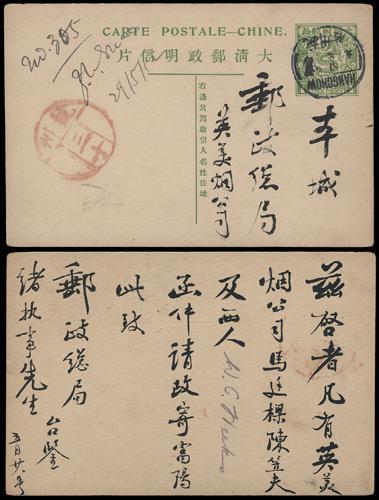 CARTE POSTALE—CHINE.
大清郵政明信片
右邊只寫收信人名姓住址
HANGCHOW
本城
郵政總局
英美烟公司
No. 305
杭州
茲啓者凡有英美
烟公司馬廷樑陳笠夫
及西人
函件請改寄富陽
此致
郵政總局 台鑒
諸執事先生
五月廿八号